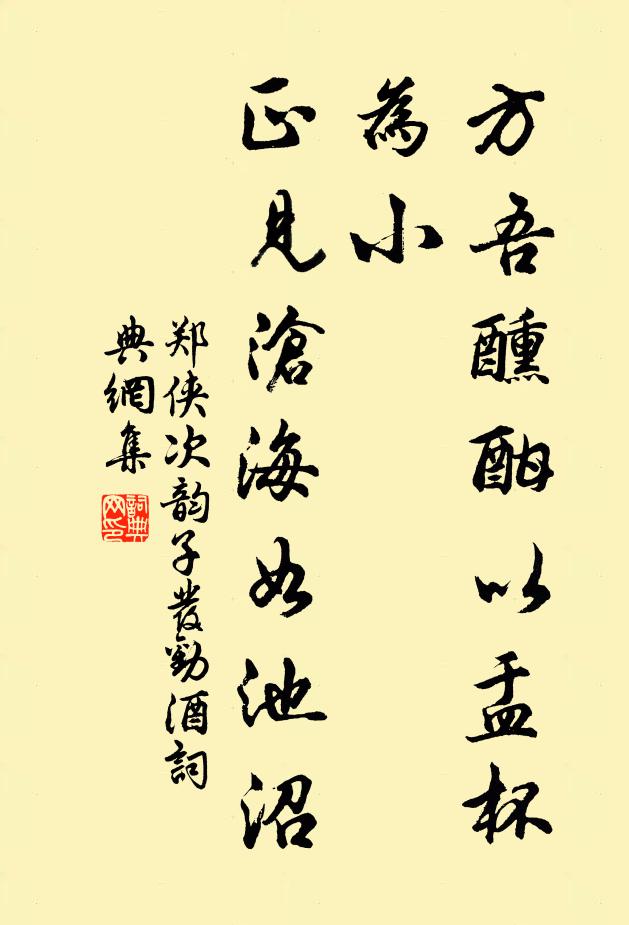 方吾醺酣以盂杯
為小
正見滄海如池沼
郑侠次韵子發勸酒詞
典網集
詞典網印